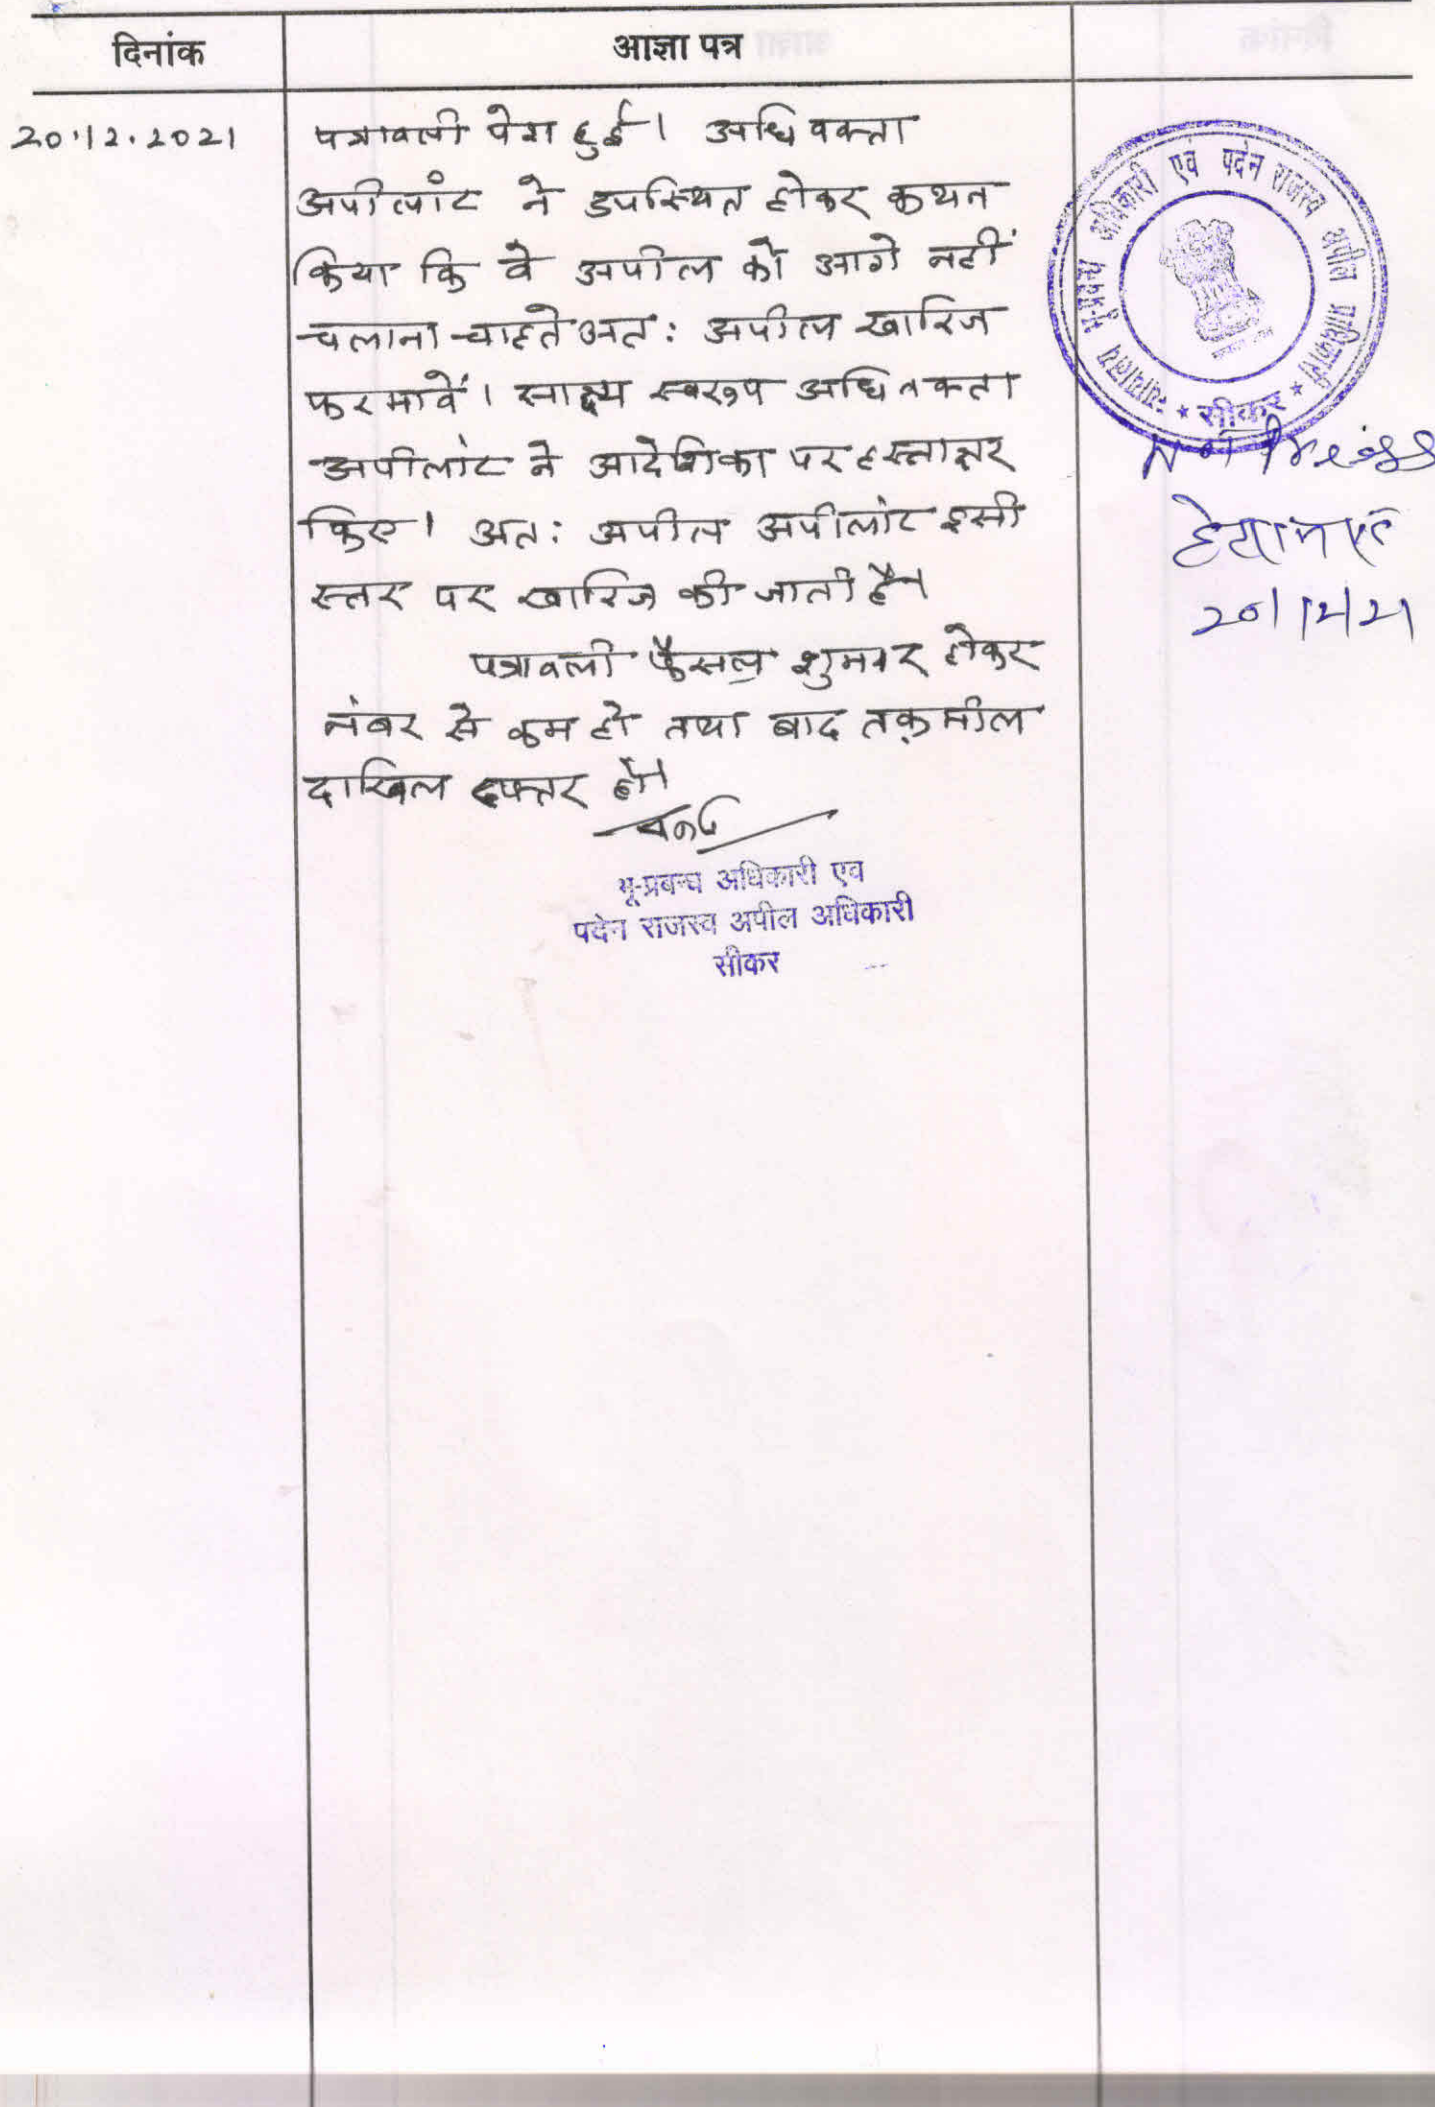 दिनांक
आज्ञा पत्र
20.12.2021
पत्रावली पेश हुई। अधिवक्ता
अपीलांट ने उपस्थित होकर कथन
किया कि वे अपील को आगे नहीं
चलाना चाहते अत: अपील खारिज
फरमावें। साक्ष्य स्वरूप अधिवक्ता
अपीलांट ने आदेशिका पर हस्ताक्षर
किए। अत: अपील अपीलांट इसी
स्तर पर खारिज की जाती है।
पत्रावली फैसल शुमार होकर
नंबर से कम हो तथा बाद तक़मील
दाखिल दफ्तर हो।
भू-प्रबन्ध अधिकारी एव
पदेन राजस्व अपील अधिकारी
सीकर
न्यायालय भू-प्रबन्ध अधिकारी एवं पदेन राजस्व अपील प्राधिकारी
* सीकर *
Not Press
20/12/21